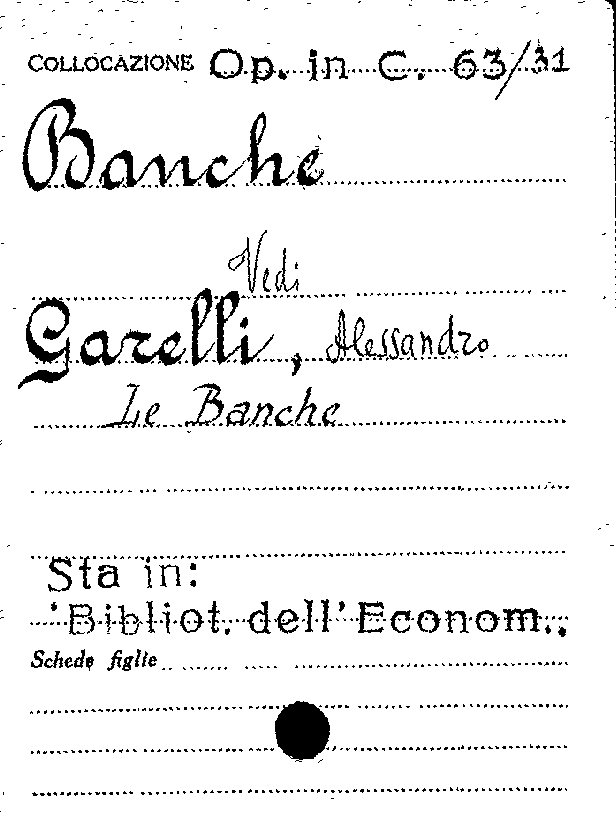 COLLOCAZIONE Op. in C. 63/31
Banche
Vedi
Garelli, Alessandro
Le Banche
Sta in:
'Bibliot. dell'Econom..
Schede figlie